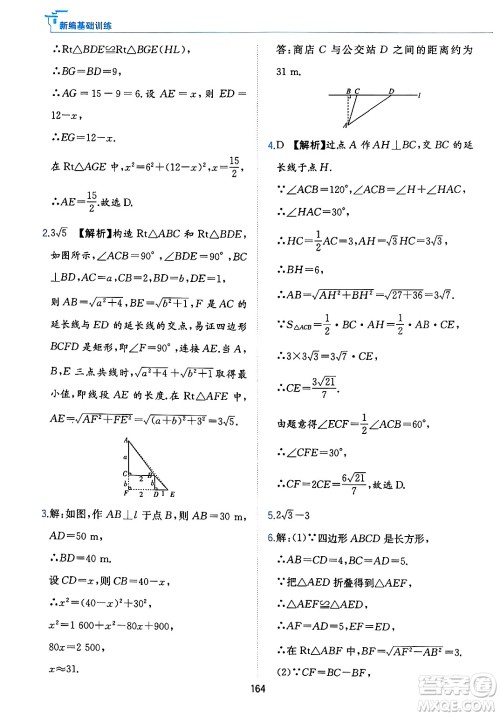 新编基础训练
∴Rt△BDE≌Rt△BGE(HL),
∴BG=BD=9,
∴AG=15-9=6. 设 AE=x, 则
EG=12-x,
∴EG=12-x.
在 Rt△AGE 中, x²=6²+(12-x)², x=15/2,
∴AE=15/2. 故选 D.
2.3√5 【解析】构造 Rt△ABC 和 Rt△BDE,
如图所示, ∠ACB=90°, ∠BDE=90°,
AC=a, DE=b,
则 AB=√(a²+4), BE=√(b²+1), F 是 AC 的
延长线与 ED 的交点, 易证四边形
BCFD 是矩形, ∴√(a²+4)+√(b²+1) 在 A,
B, E 三点共线时 AB+BE 取得最
小值, 即线段 AE 的长度,
AE=√(AF²+FE²)=√((a+b)²+3²)=3√5.
A
a
C
B
F
D
b
E
3.解: 如图, 作 AB⊥l 于点 B, AB=30 m,
AD=50 m,
∴BD=40 m.
设 CD=x, 则 AC=x, BC=40-x,
∴x²=(40-x)²+30²,
x²=1 600-80x+x²+900,
80x=2 500,
x≈31.
答: 商店 C 与公交站 D 之间的距离约为
31 m.
B
C
D
l
A
4.D 【解析】过点 A 作 AH⊥BC, 交 BC 的延
长线于点 H.
∵∠ACB=120°, ∠ACH=60°,
∠HAC=30°,
∴HC=1/2AC=3, AH=√3HC=3√3,
∴BH=6.
∴AB=√(AH²+BH²)=√(27+36)=3√7.
∵S△ACB=1/2AB·CE=1/2BC·AH,
∴3×3√3=3√7·CE,
∴CE=3√21/7,
由题意得∠ECF=1/2∠ACB=60°,
∴∠CFE=30°,
∴CF=2CE=6√21/7, 故选 D.
5.2√3-3
6.解:(1)∵四边形 ABCD 是长方形,
∴AB=CD, ∠ABF=∠D=90°,
∵把△AED 折叠得到△AEF,
∴△AED≌△AEF,
∴AF=AD=5, BF=√(AF²-AB²)=4.
(2)∵△AED≌△AEF,
164
答案圈
MXQE.COM